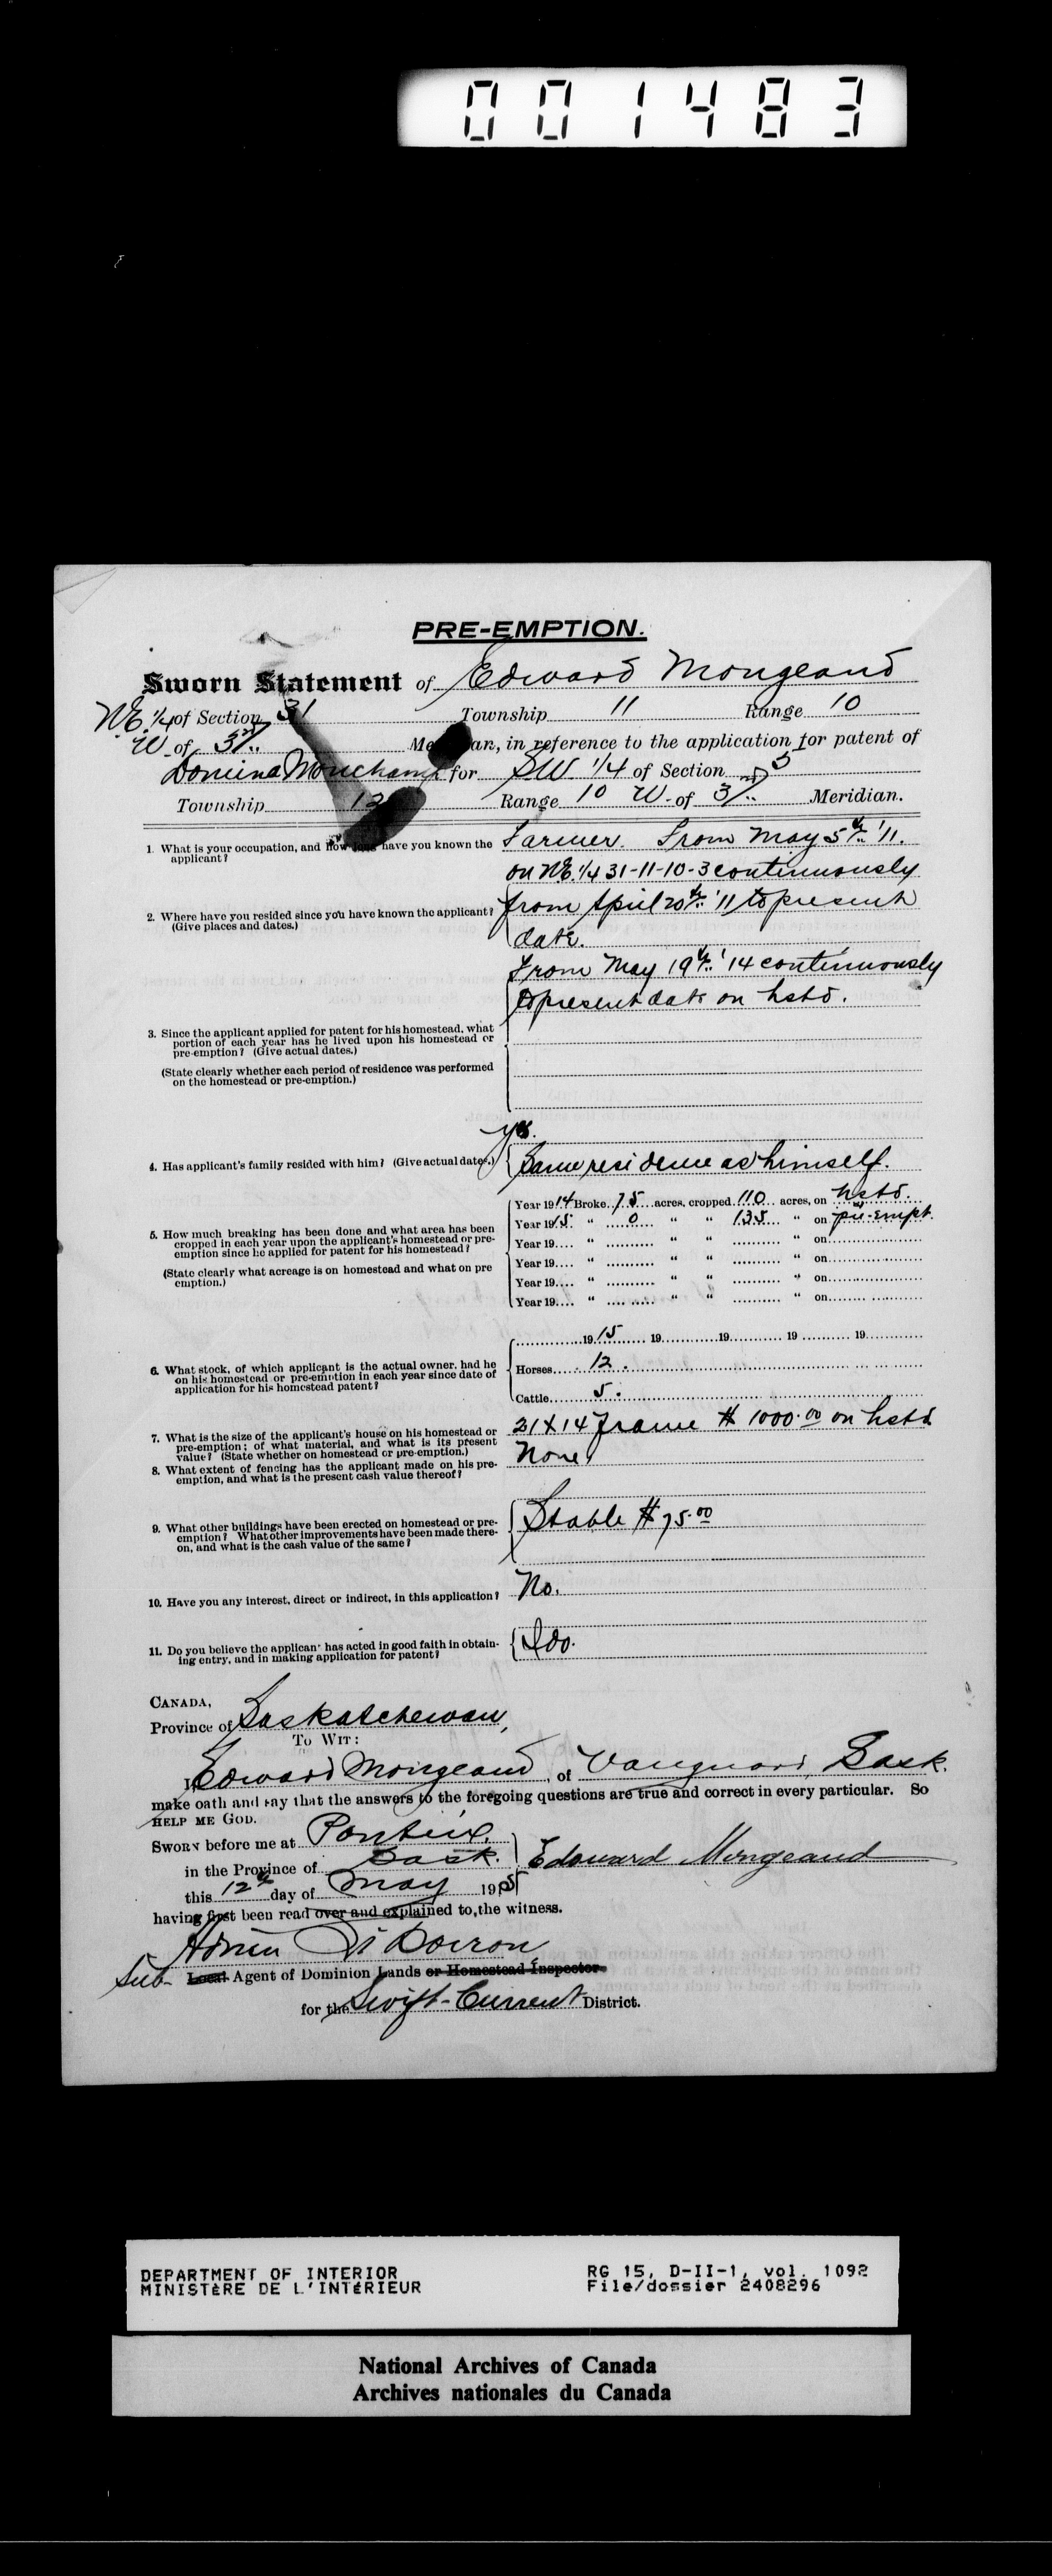 001483
PRE-EMPTION.
Sworn Statement of Edward Mongeand
N.E. 1/4 of Section 31 Township 11 Range 10
W. of 3rd Meridian, in reference to the application for patent of
Domina Monchamp for SW 1/4 of Section 5
Township 12 Range 10 W. of 3rd Meridian.
1. What is your occupation, and how long have you known the applicant? Farmer. From May 5th '11.
on N.E. 1/4 31-11-10-3 continuously
2. Where have you resided since you have known the applicant? (Give places and dates.) from April 20th '11 to present
date.
From May 19th '14 continuously
to present date on hstd.
3. Since the applicant applied for patent for his homestead, what
portion of each year has he lived upon his homestead or
pre-emption? (Give actual dates.)
(State clearly whether each period of residence was performed
on the homestead or pre-emption.)
yes.
4. Has applicant's family resided with him? (Give actual dates.) Same residence as himself.
Year 1914 Broke 75 acres, cropped 110 acres, on hstd.
Year 1915 " 0 " " 135 " on pre-empt.
5. How much breaking has been done and what area has been
cropped in each year upon the applicant's homestead or pre-
emption since he applied for patent for his homestead?
(State clearly what acreage is on homestead and what on pre
emption.)
Year 19.... " .......... " " .......... " on
Year 19.... " .......... " " .......... " on
Year 19.... " .......... " " .......... " on
Year 19.... " .......... " " .......... " on
1915 19 19 19 19
6. What stock, of which applicant is the actual owner, had he
on his homestead or pre-emption in each year since date of
application for his homestead patent?
Horses 12.
Cattle 5.
7. What is the size of the applicant's house on his homestead or
pre-emption; of what material, and what is its present
value? (State whether on homestead or pre-emption.)
21 X 14 frame $1000.00 on hstd.
8. What extent of fencing has the applicant made on his pre-
emption, and what is the present cash value thereof?
None
9. What other buildings have been erected on homestead or pre-
emption? What other improvements have been made there-
on, and what is the cash value of the same?
Stable $75.00
10. Have you any interest, direct or indirect, in this application? No.
11. Do you believe the applicant has acted in good faith in obtain-
ing entry, and in making application for patent?
I do.
CANADA,
Province of Saskatchewan,
TO WIT:
I, Edward Mongeand, of Vanguard, Sask.
make oath and say that the answers to the foregoing questions are true and correct in every particular. So
HELP ME GOD.
SWORN before me at Ponteix,
in the Province of Sask.
this 12th day of May 1915
Edouard Mongeand
having first been read over and explained to, the witness.
Doiron
Sub- Local Agent of Dominion Lands or Homestead Inspector
for the Swift-Current District.
DEPARTMENT OF INTERIOR
MINISTÈRE DE L'INTÉRIEUR
RG 15, D-II-1, vol. 1092
File/dossier 2408296
National Archives of Canada
Archives nationales du Canada